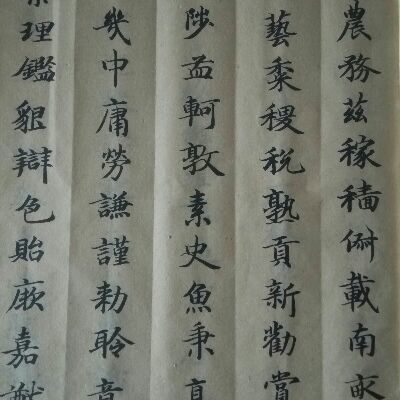 農務茲稼穡俶載南畝
藝黍稷稅熟貢新勸賞
陟孟軻敦素史魚秉直
幾中庸勞謙謹勅聆音
理鑑貌辯色貽厥嘉猷